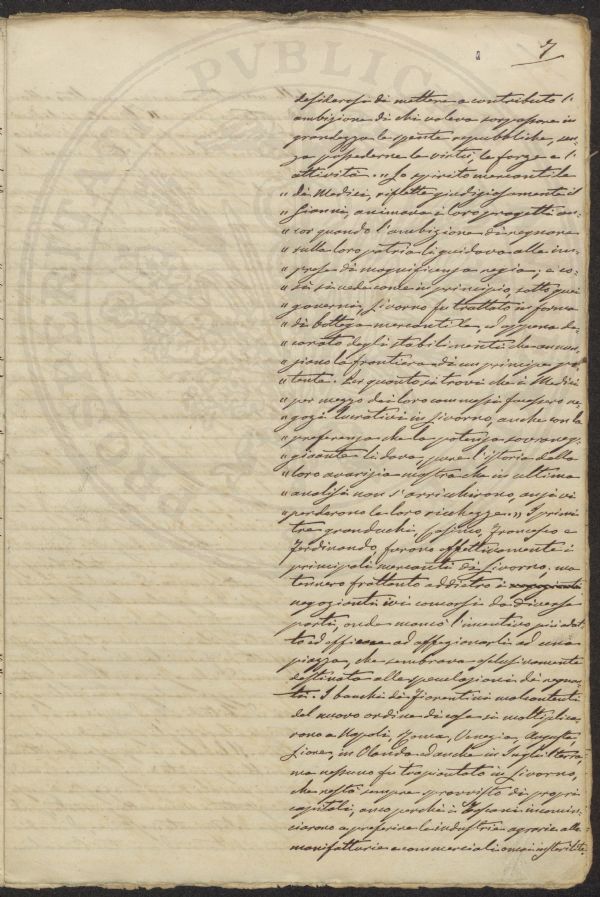 7
desiderosa di mettere a contributo l'
ambizione di chi voleva sorpassare in
grandezza le spente repubbliche, sen-
za possederne le virtù, le forze e l'
attività. "Lo spirito mercantile
" de' Medici, riflette giudiziosamente il
" Gianni, animava i loro progetti an-
" cor quando l'ambizione di regnare
" sulla loro patria li guidava alle im-
" prese di magnificenza regia; e co-
" sì si vede come in principio, sotto quei
" governi, Livorno fu trattato in forma
" di bottega mercantile, ed appena de-
" corato degli stabilimenti che annun-
" ziano la frontiera di un principe po-
" tente. Per quanto si trovi che i Medici
" per mezzo dei loro commessi facessero ne-
" gozi lucrativi in Livorno, anche con la
" preferenza che la potenza sovrana ne-
" goziante li dava, pure l'istoria della
" loro avarizia mostra che in ultima
" analisi non s'arricchirono, anzi vi
" perderono le loro ricchezze." I primi
tre granduchi, Cosimo, Francesco e
Ferdinando, furono effettivamente i
principali mercanti di Livorno, ma
tennero frattanto addietro i
negozianti ivi concorsi da diverse
parti, onde mancò l'incentivo più adat-
to ed efficace ad affezionarli ad una
piazza, che sembrava esclusivamente
destinata alle speculazioni dei regnan-
ti. I banchi di fiorentini malcontenti
del nuovo ordine di cose si moltiplica-
rono a Napoli, Roma, Venezia, Augusta
Lione, in Olanda ed anche in Inghilterra,
ma nessuno fu trapiantato in Livorno,
che restò sempre provvisto di propri
capitali, anco perchè i Toscani incomin-
ciarono a preferire le industrie agrarie alle
manifatturie e commerciali omai isterilite.
PVBLICA